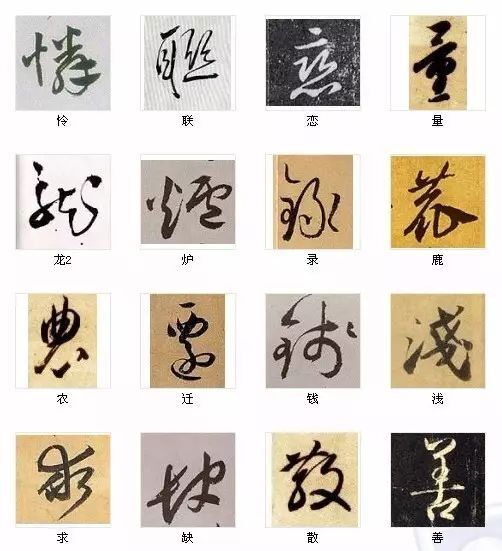 怜 联 恋 量
龙2 炉 录 鹿
农 迁 钱 浅
求 缺 散 善